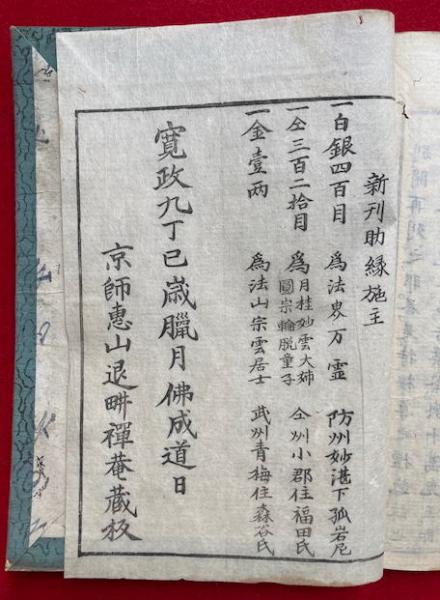 新刊助縁施主
一白銀四百目 爲法界万霊 防州妙湛下孤岩尼
一仝三百二拾目 爲月桂妙雲大姉 圓宗輪脱童子 仝州小郡住福田氏
一金壹两 爲法山宗雲居士 武州青梅住森谷氏
寛政九丁巳歳臘月佛成道日
京師惠山退畊禪菴蔵板